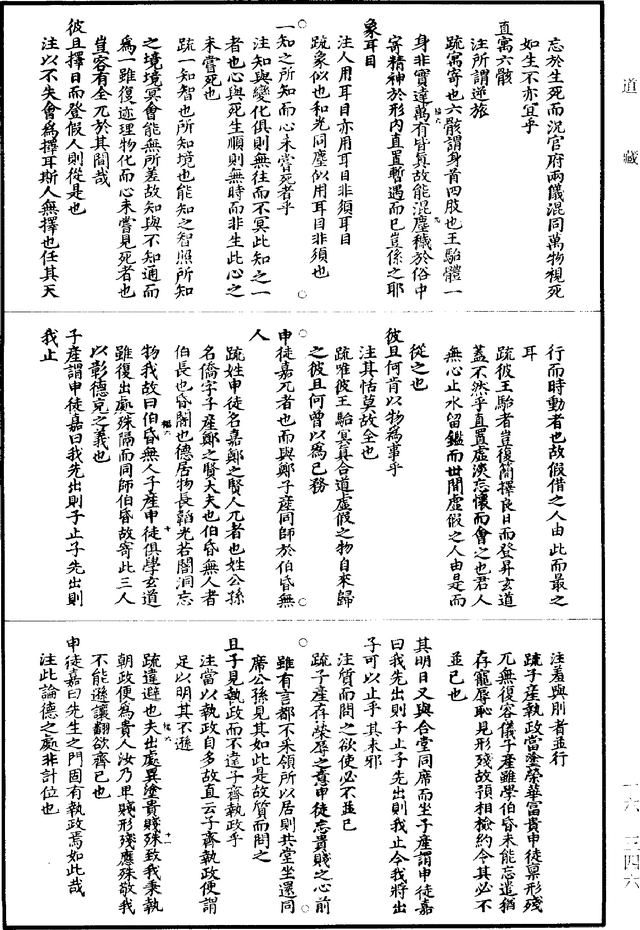 道藏
忘於生死而況官府兩儀混同萬物視死
如生不亦宜乎
直寓六骸
注所謂逆旅
疏寓寄也六骸謂身首四肢也王駘體一
身非實達萬有皆真故能混塵穢於俗中
寄精神於形內直置暫遇而已豈係之耶
象耳目
注人用耳目亦用耳目非須耳目
疏象似也和光同塵似用耳目非須也
一知之所知而心未嘗死者乎
注知與變化俱則無往而不冥此知之一
者也心與死生順則無時而非生此心之
未嘗死也
疏一知智也所知境也能知之智照所知
之境境冥會能無所差故知與不知通而
為一雖復迹理物化而心未嘗見死者也
豈容有全兀於其間哉
彼且擇日而登假人則從是也
注以不失會為擇耳斯人無擇也任其天
行而時動者也故假借之人由此而最之
耳
疏彼王駘者豈復簡擇良日而登昇玄道
蓋不然乎直置虛淡忘懷而會之也君人
無心止水留鑑而世間虛假之人由是而
從之也
彼且何肯以物為事乎
注其恬莫故全也
疏唯彼王駘冥真合道虛假之物自來歸
之彼且何曾以為己務
申徒嘉兀者也而與鄭子產同師於伯昏無
人
疏姓申徒名嘉鄭之賢人兀者也姓公孫
名僑字子產鄭之賢大夫也伯昏無人者
伯長也昏闇也德居物長韜光若闇洞忘
物我故曰伯昏無人子產申徒俱學玄道
雖復出處殊隔而同師伯昏故寄此三人
以彰德充之義也
子產謂申徒嘉曰我先出則子止子先出則
我止
注羞與刖者並行
疏子產執政當塗榮華富貴申徒稟形殘
兀無復容儀子產雖學伯昏未能忘遣猶
存寵辱恥見形殘故預相檢約令其必不
並已也
其明日又與合堂同席而坐子產謂申徒嘉
曰我先出則子止子先出則我止今我將出
子可以止乎其未邪
注質而問之欲使必不並已
疏子產存榮辱之意申徒忘貴賤之心前
雖有言都不采領所以居則共堂坐還同
席公孫見其如此是故質而問之
且子見執政而不違子齊執政乎
注當以執政自多故直云子齊執政便謂
足以明其不遜
疏違避也夫出處異塗貴賤殊致我秉執
朝政便為貴人汝乃卑賤形殘應殊敬我
不能遜讓翻欲齊己也
申徒嘉曰先生之門固有執政焉如此哉
注此論德之處非計位也
一六 三四六